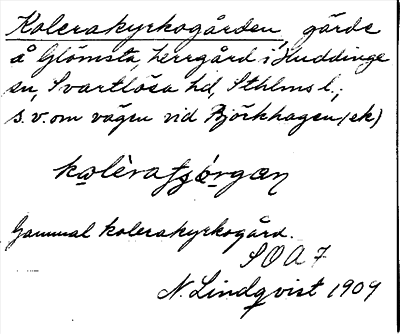 Kolerakyrkogården, gärde
å Glömsta, herrgård i Huddinge
sn, Svartlösa hd, Sthlms l.;
s.v. om vägen vid Björkhagen (ek)
Gammal kolerakyrkogård.
SOA 7
N. Lindqvist 1909